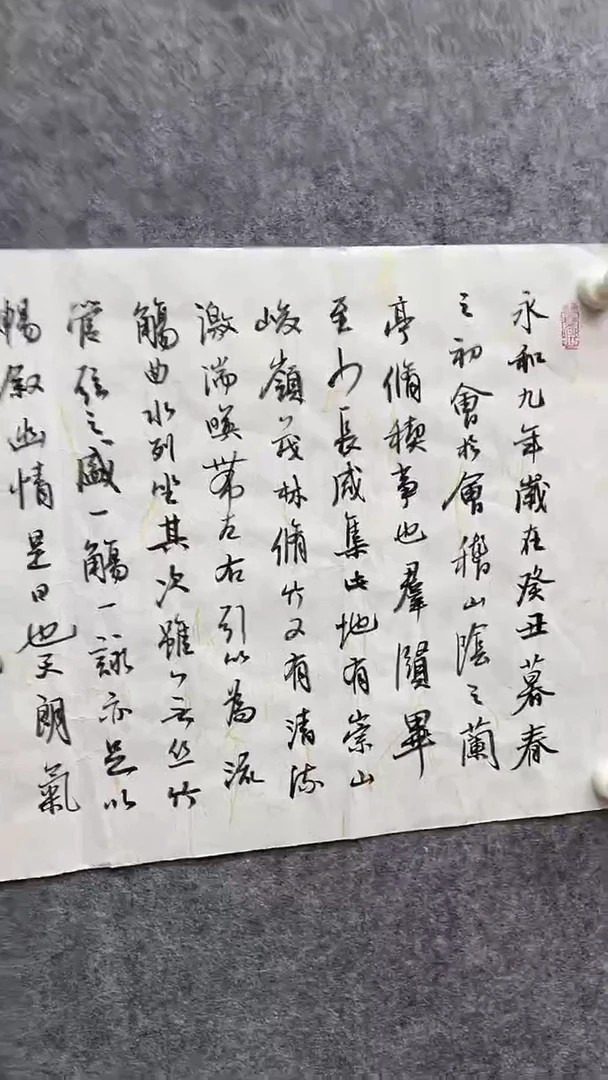 永和九年歲在癸丑暮春
之初會於會稽山陰之蘭
亭脩稧事也羣賢畢
至少長咸集此地有崇山
峻嶺茂林脩竹又有清流
激湍暎帶左右引以為流
觴曲水列坐其次雖無絲竹
管弦之盛一觴一詠亦足以
暢敘幽情是日也天朗氣